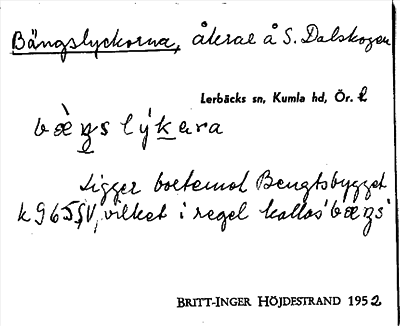 Bängslyckorna, åkrar å S. Dalskogen
Lerbäcks sn, Kumla hd, Ör. l
bæ̀ŋs lýkara
Ligger bortemot Bengtsbygget
k 965 SV, vilket i regel kallas 'bæŋs'
BRITT-INGER HÖJDESTRAND 1952